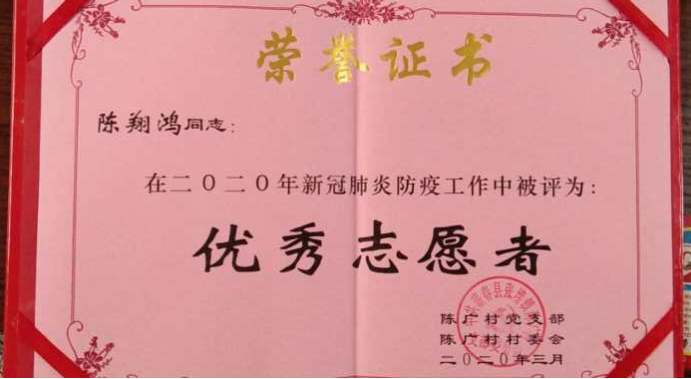 荣誉证书
陈翔鸿同志:
在二〇二〇年新冠肺炎防疫工作中被评为:
优秀志愿者
陈广村党支部
陈广村村委会
二〇二〇年三月